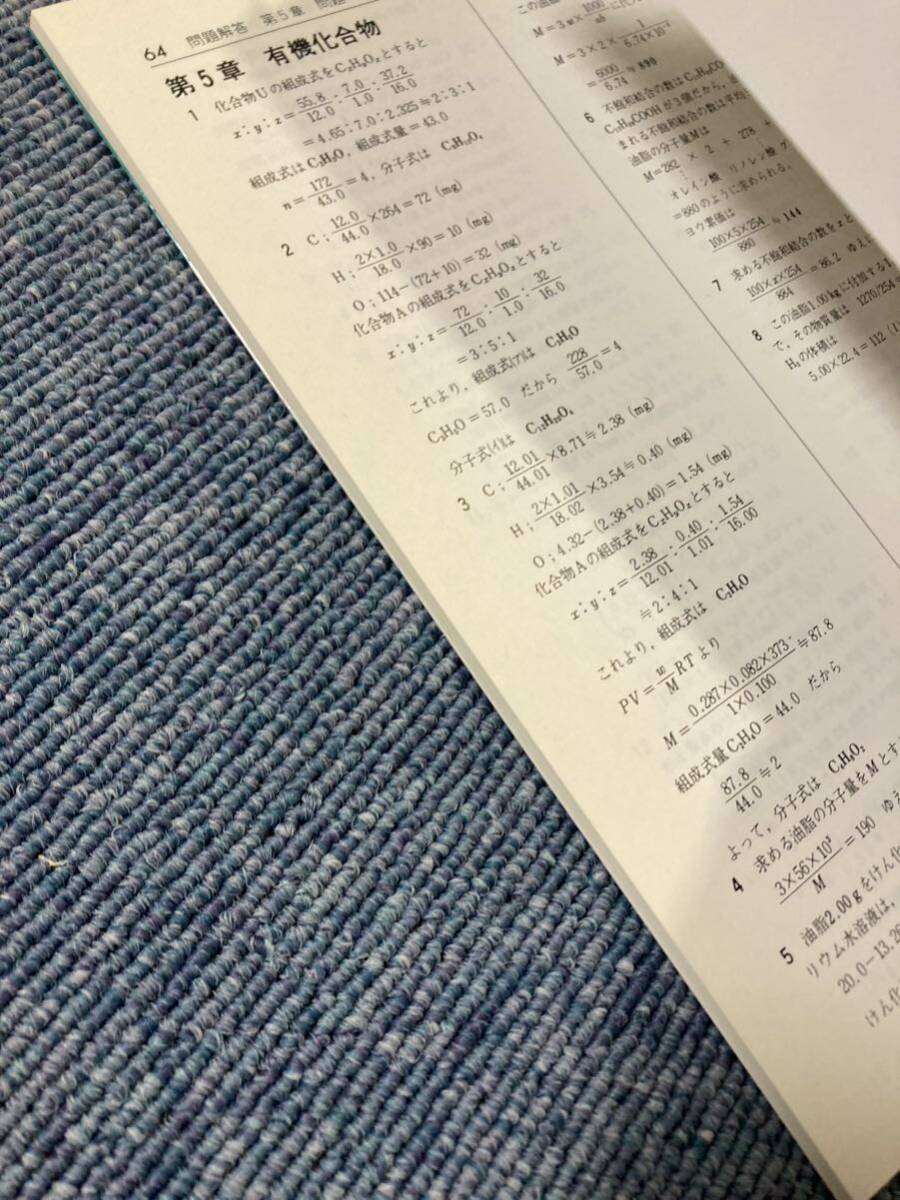 64 問題解答 第5章 問題
第5章 有機化合物
1 化合物Uの組成式をCxHyOzとすると
x:y:z=55.8/12.0:7.0/1.0:37.2/16.0
=4.65:7.0:2.325≒2:3:1
組成式はC2H3O,組成式量=43.0
n=172/43.0=4,分子式は C8H12O4
2 C;12.0/44.0×264=72 (mg)
H;2×1.0/18.0×90=10 (mg)
O;114-(72+10)=32 (mg)
化合物Aの組成式をCxHyOzとすると
x:y:z=72/12.0:10/1.0:32/16.0
=3:5:1
これより,組成式(ア)は C3H5O
C3H5O=57.0 だから 228/57.0=4
分子式(イ)は C12H20O4
3 C;12.01/44.01×8.71≒2.38 (mg)
H;2×1.01/18.02×3.54≒0.40 (mg)
O;4.32-(2.38+0.40)=1.54 (mg)
化合物Aの組成式をCxHyOzとすると
x:y:z=2.38/12.01:0.40/1.01:1.54/16.00
≒2:4:1
これより,組成式は C2H4O
PV=w/M RTより
M=0.287×0.082×373/1×0.100≒87.8
組成式量C2H4O=44.0 だから
87.8/44.0≒2
よって,分子式は C4H8O2
4 求める油脂の分子量をMとす
3×56×10³/M=190 ゆえ
5 油脂2.00gをけん化
リウム水溶液は,
20.0-13.2
けん化
この油脂
M=3w×1000/
M=3×2×1/6.74×10⁻³
=6000/6.74≒890
6 不飽和結合の数は
COOH が3個だから,油
まれる不飽和結合の数は平均
油脂の分子量Mは
M=282 × 2 + 278 +
オレイン酸 リノレン酸 グ
=880のように求められる。
ヨウ素価は
100×5×254/880≒144
7 求める不飽和結合の数をxと
100×x×254/884=86.2 ゆえに
8 この油脂1.00kgに付加するI
で,その物質量は 1270/254=
H2の体積は
5.00×22.4=112